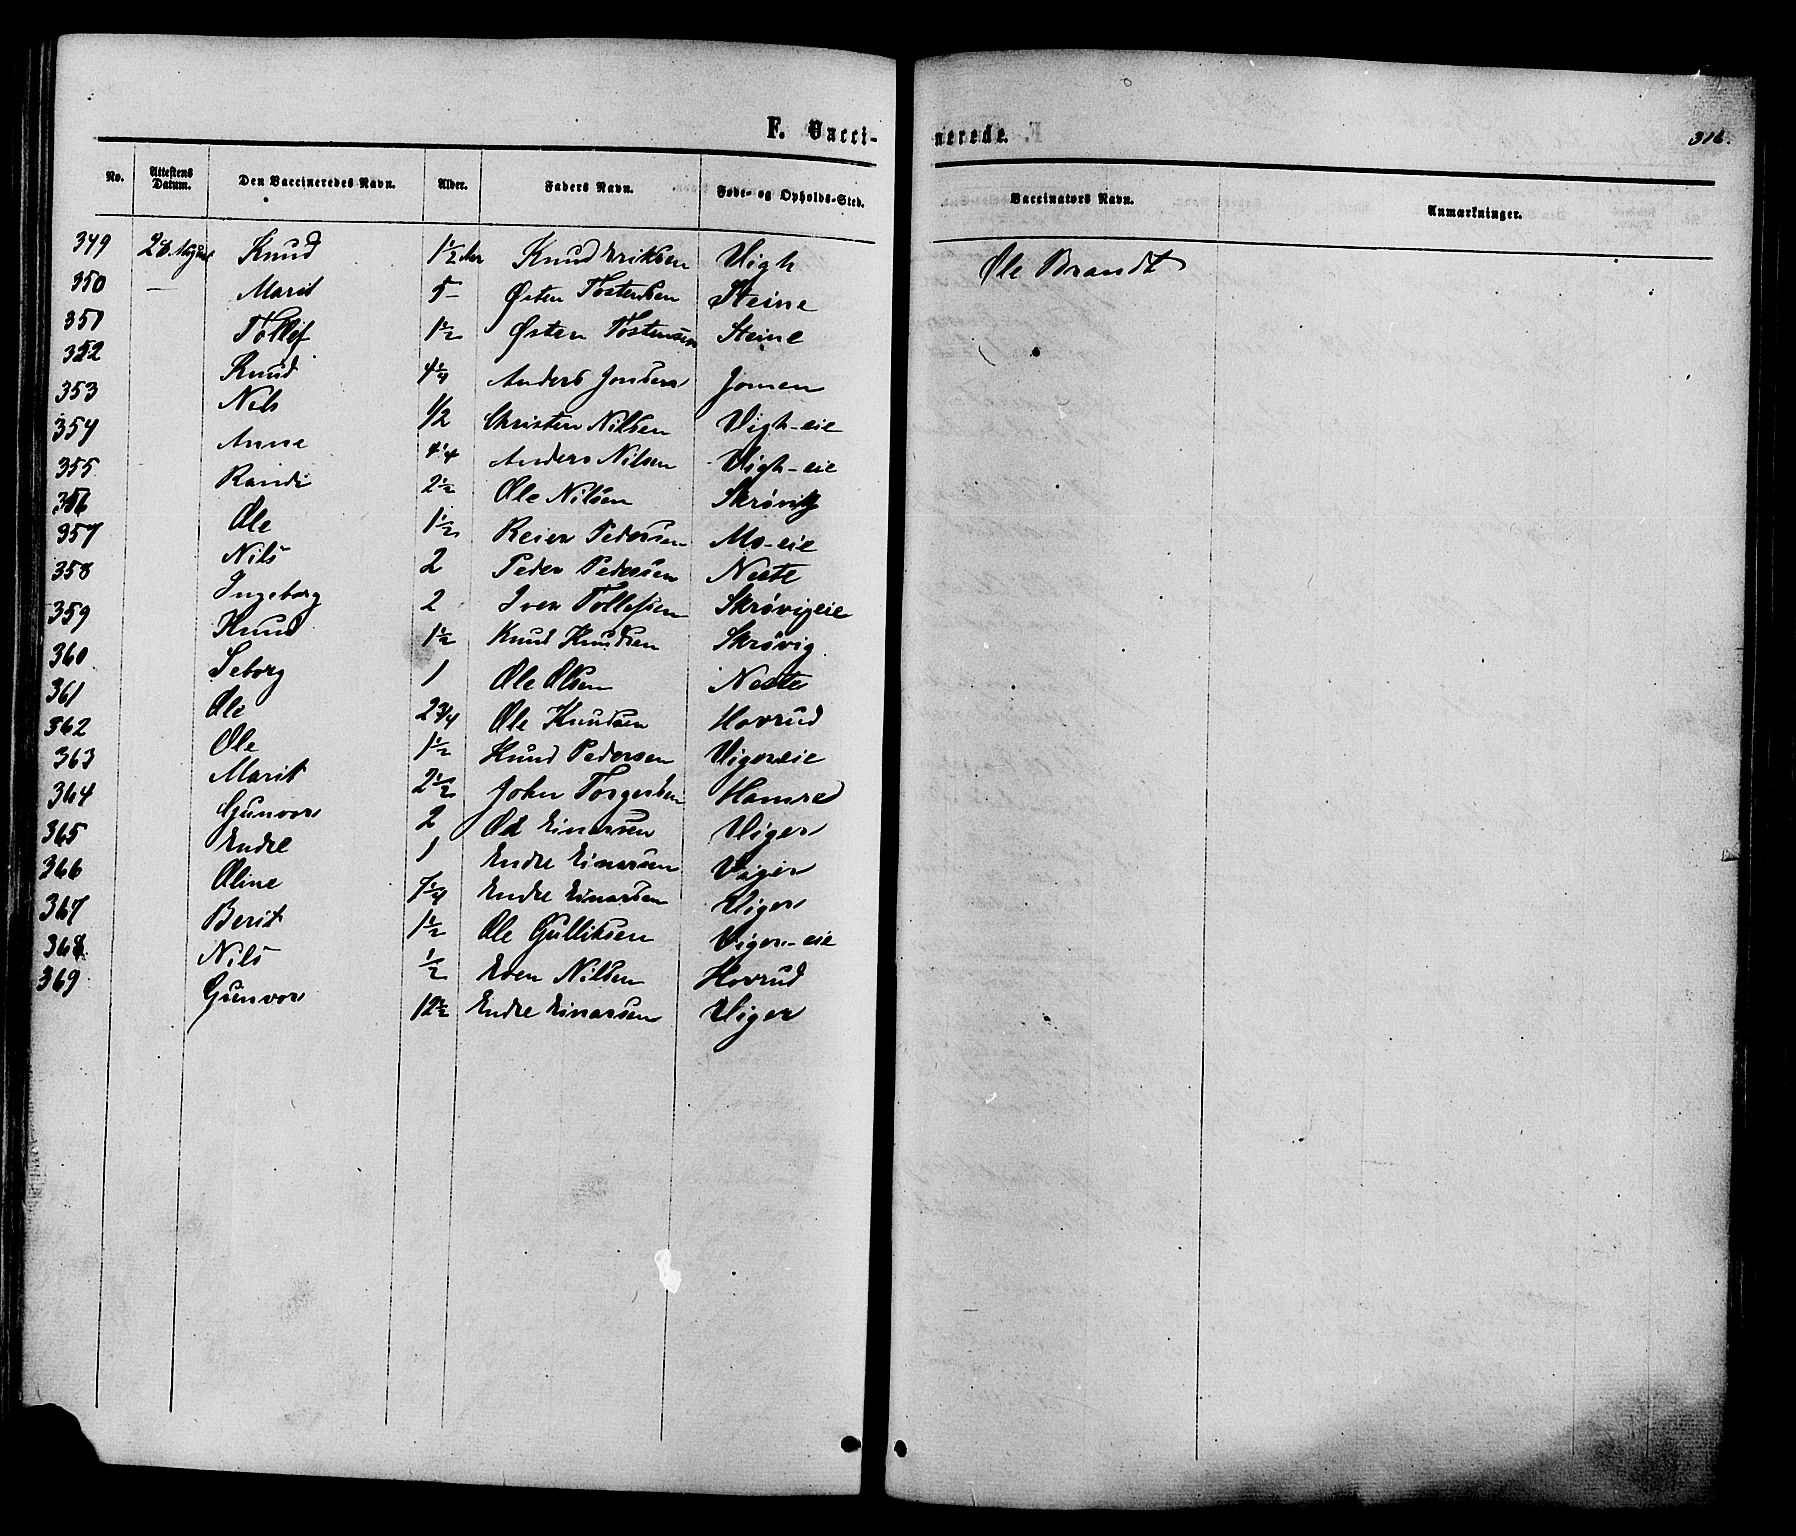 F. Vaccinerede.
316.
No. Attestens Datum. Den Vaccineredes Navn. Alder. Faders Navn. Føde- og Opholds-Sted. Vaccinators Navn. Anmærkninger.
349 28 Knud 1½ Aar Knud Eriksen Vigh Ole Brandt
350 — Marit 5 – Østen Tostensen Steine
351 Tollef 1½ Østen Tostensen Steine
352 Knud 4¼ Anders Jonsen Jomen
353 Nels 1/2 Christen Nilsen Vigh-eie
354 Anne 4¼ Anders Nilsen Vigh-eie
355 Randi 2½ Ole Nilsen Skrøvig
356 Ole 1½ Reier Pedersen Mo-eie
357 Nils 2 Peder Pedersen Neste
358 Ingeborg 2 Iver Tollefsen Skrøvigeie
359 Knud 1½ Knud Knudsen Skrøvig
360 Seborg 1 Ole Olsen Neste
361 Ole 2 3/4 Ole Knudsen Hovrud
362 Ole 1½ Knud Pedersen Vigereie
363 Marit 2½ John Torgersen Hamre
364 Gunvor 2 Einarsen Viger
365 Endre 1 Endre Einarsen Viger
366 Oline 7¼ Endre Einarsen Viger
367 Berit 1½ Ole Gulliksen Viger-eie
368 Nils ½ Even Nilsen Hovrud
369 Gunvor 12½ Endre Einarsen Viger